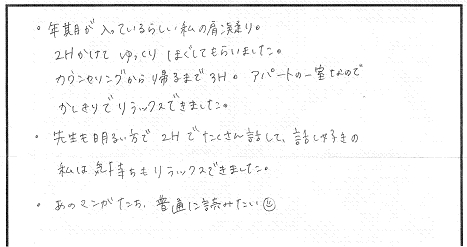 。年期が入っているらしい私の肩凝り。
2Hかけて ゆっくり ほぐしてもらいました。
カウンセリングから帰るまで3H。アパートの一室なので
かしきりでリラックスできました。
。先生も明るい方で 2Hでたくさん話して、話し好きの
私は気持ちもリラックスできました。
。あのマンガたち、普通に読みたい☺